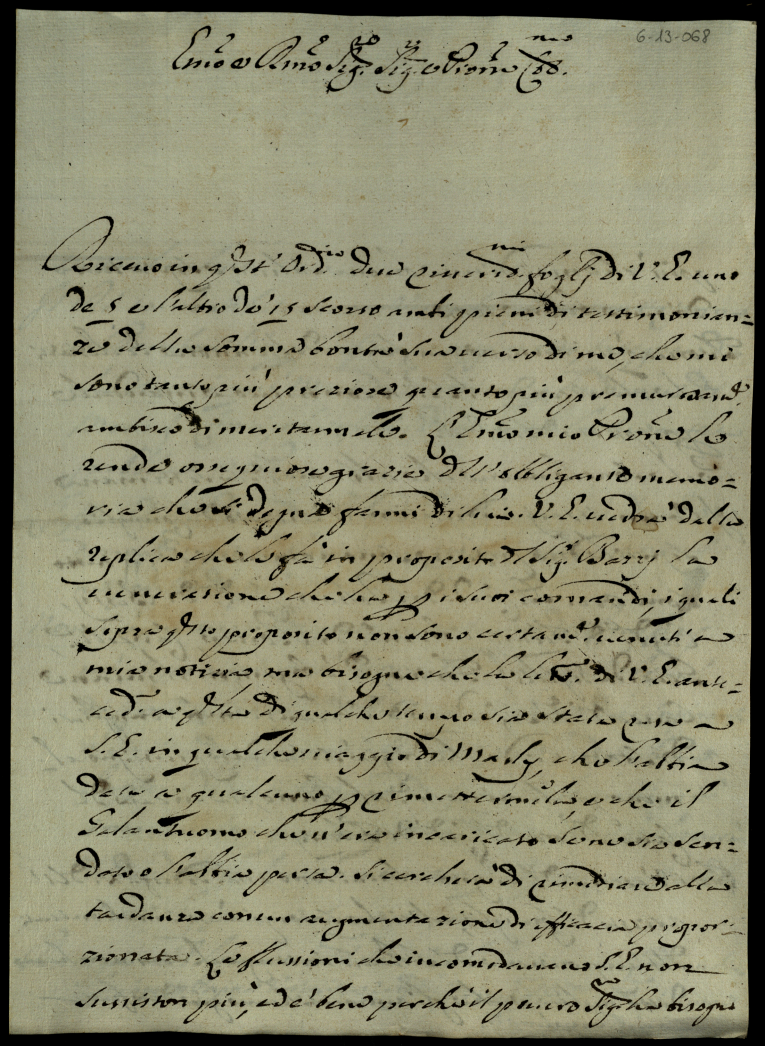 6-13-068
Em̃o e Rm̃o Sig.re Sig.re e Pron̄e Col.mo
Ricevo in q̃st' Ord.rio due riveriti.mi foglj di V. E. uno
de 5 e l'altro de' 15 scorso ambi pieni di testimonian=
ze della somma bontà sua verso di me, che mi
sono tanto più preziose quanto più premurosam.e
ambisco di meritarmele. L'Em̃o mio Pron̄e le
rende ossequiose grazie dell'obbligante memo=
ria che si degna farmi di lui. V. E. vedrà dalla
replica che le fà in proposito del Sig. Barrj la
venerazione che hà p i suoi comandi, i quali
sopra q̃sto proposito non sono certam.e venuti a
mia notizia, ma bisogna che la lett.a di V. E. ante=
ced.e a q̃sta di qualche tempo sia stata resa a
S. E. in qualche viaggio di Marly, che l'abbia
data a qualcuno p rimettermela, e che il
Galantuomo che n'era incaricato se ne sia scor=
dato o l'abbia persa. Si cercherà di rimediare alla
tardanza con un augmentazione di efficacia propor=
zionata. Le flussioni che incomodavano S. E. non
sussiston più, ed è bene perchè il povero Sig.re ha bisogno